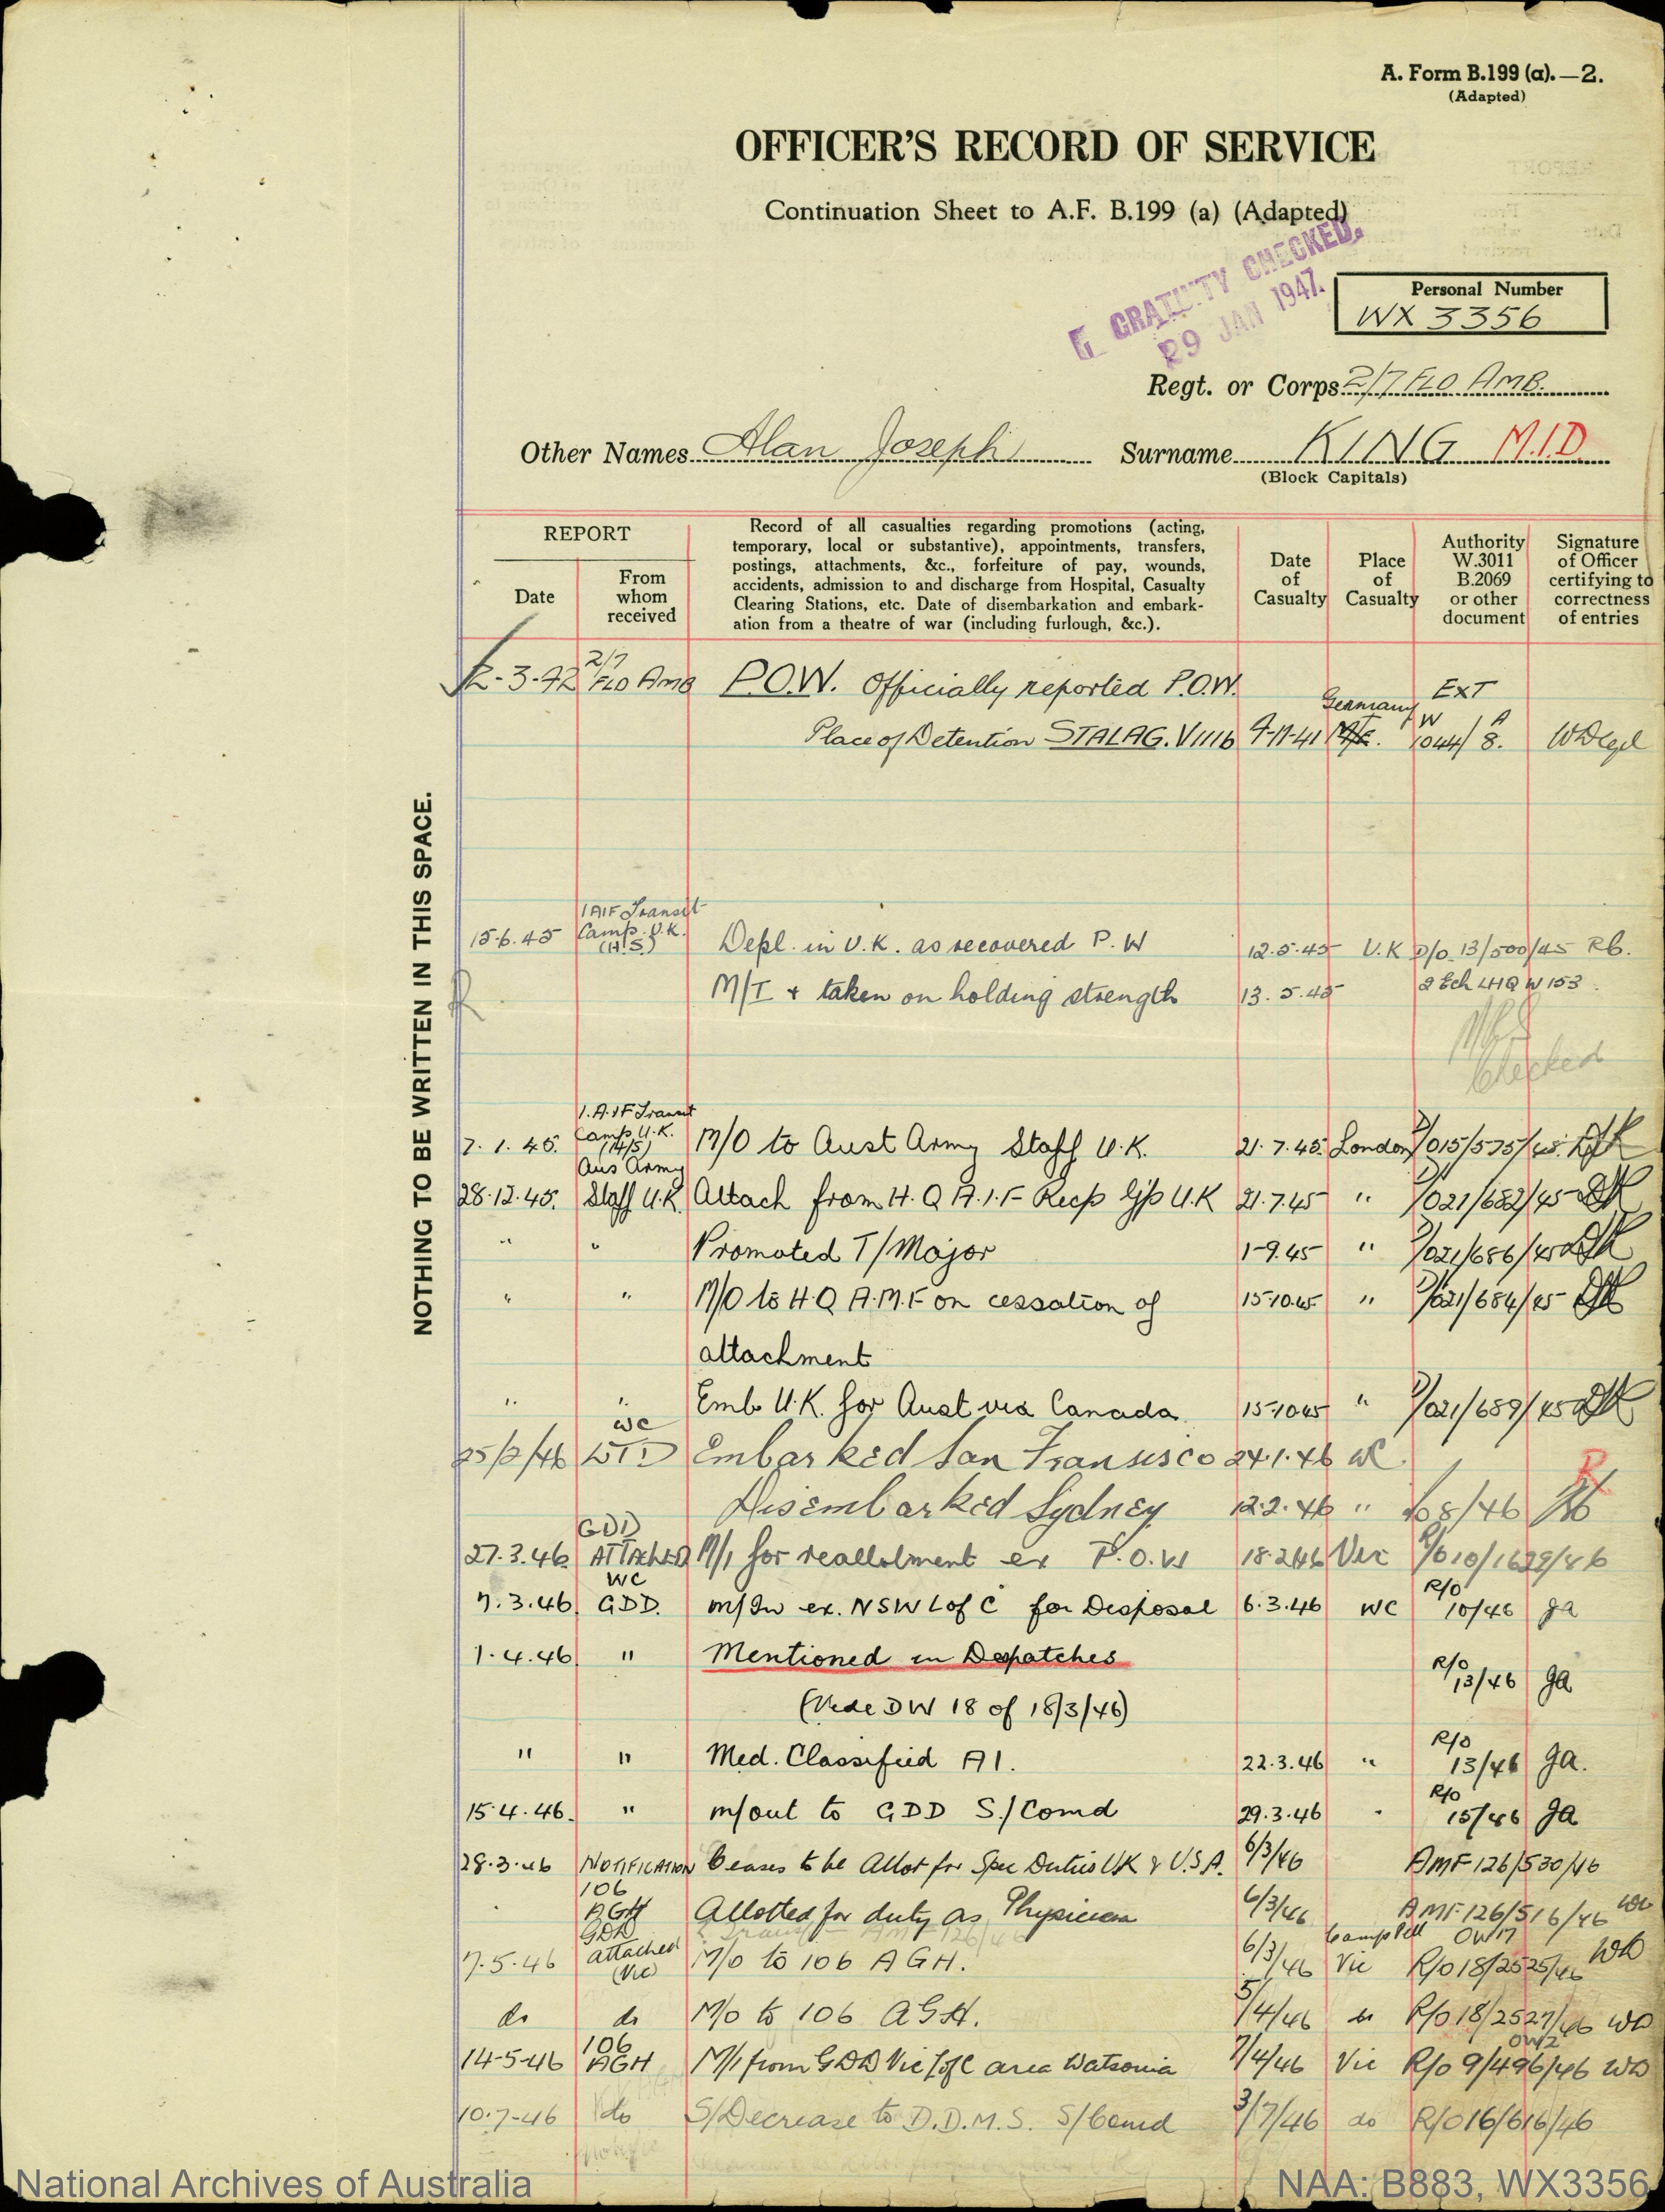 A. Form B.199 (a).—2.
(Adapted)
OFFICER'S RECORD OF SERVICE
Continuation Sheet to A.F. B.199 (a) (Adapted)
GRATUITY CHECKED.
29 JAN 1947.
Personal Number
WX 3356
Regt. or Corps 2/7 FLD AMB.
Other Names Alan Joseph Surname KING M.I.D.
(Block Capitals)
NOTHING TO BE WRITTEN IN THIS SPACE.
REPORT
Date
From whom received
Record of all casualties regarding promotions (acting,
temporary, local or substantive), appointments, transfers,
postings, attachments, &c., forfeiture of pay, wounds,
accidents, admission to and discharge from Hospital, Casualty
Clearing Stations, etc. Date of disembarkation and embark-
ation from a theatre of war (including furlough, &c.).
Date of Casualty
Place of Casualty
Authority W.3011 B.2069 or other document
Signature of Officer certifying to correctness of entries
2-3-42 2/7 FLD Amb P.O.W. Officially reported P.O.W.
Germany EXT
Place of Detention STALAG. VIIIb 9-11-41 W 1044/8. A
1 AIF Transit
15.6.45 Camp. U.K. (H.S.) Depl. in U.K. as recovered P.W 12.5.45 U.K D/O 13/500/45
M/I + taken on holding strength 13.5.45 2 Ech LHQ W 153
Checked
1.A.I.F Transit
7.1.45. Camp U.K. M/O to Aust Army Staff U.K. 21.7.45 London 015/575/45
Aus Army
28.12.45. Staff U.K. Attach from H.Q A.I.F Recp Gp U.K 21.7.45 " 021/682/45
" " Promoted T/Major 1-9.45 " 021/686/45
" " M/O to H.Q A.M.F on cessation of 15-10.45 " 021/684/45
attachment
" " Emb U.K. for Aust via Canada 15-10.45 " 021/689/45
WC
25/2/46 LTD Embarked San Fransisco 24.1.46
Disembarked Sydney 12.2.46 " 8/46
GDD
27.3.46 ATTACHED M/I for reallotment ex P.O.W 18.2.46 Vic R/O 10/1629/46
WC
7.3.46 GDD. m/In ex. NSW L of C for Disposal 6.3.46 WC R/O 10/46 ga
1.4.46 " Mentioned in Despatches R/O 13/46 ga
(Vide DW 18 of 18/3/46)
" " Med. Classified A1. 22.3.46 " R/O 13/46 ga.
15.4.46. " m/out to GDD S/Comd 29.3.46 " R/O 15/46 ga
28.3.46 NOTIFICATION Ceases to be Allot for Spec Duties UK & U.S.A. 6/3/46 AMF 126/530/46
106
AGH Allotted for duty as Physician 6/3/46 AMF 126/516/46
GDD Camp Pell
7.5.46 attached (Vic) M/O to 106 AGH. 6/3/46 Vic R/O 18/2525/46
do do M/O to 106 AGH. 5/4/46 do R/O 18/2527/46
106
14-5-46 AGH M/I from GDD Vic L of C area Watsonia 7/4/46 Vic R/O 9/496/46
10.7-46 do S/Decrease to D.D.M.S. S/Comd 3/7/46 do R/O 16/616/46
National Archives of Australia
NAA: B883, WX3356